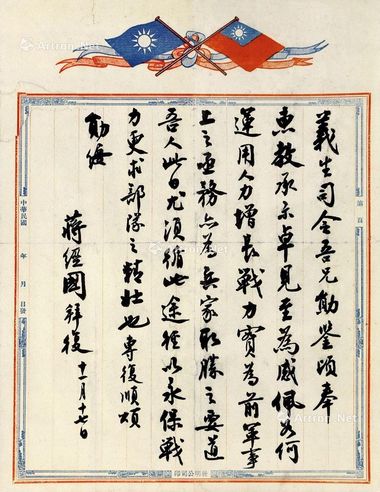 義生司令吾兄勛鑒頃奉
惠教承示卓見至為感佩如何
運用人力增長戰力實為前軍事
上之亟務亦為兵家取勝之要道
吾人此日尤須循此途徑以永保戰
力更求部隊之精壯也專復順頌
勛綏
蔣經國拜復 十一月十七日
第 頁
中華民國 年 月 日發
明公司印
Artron.Net